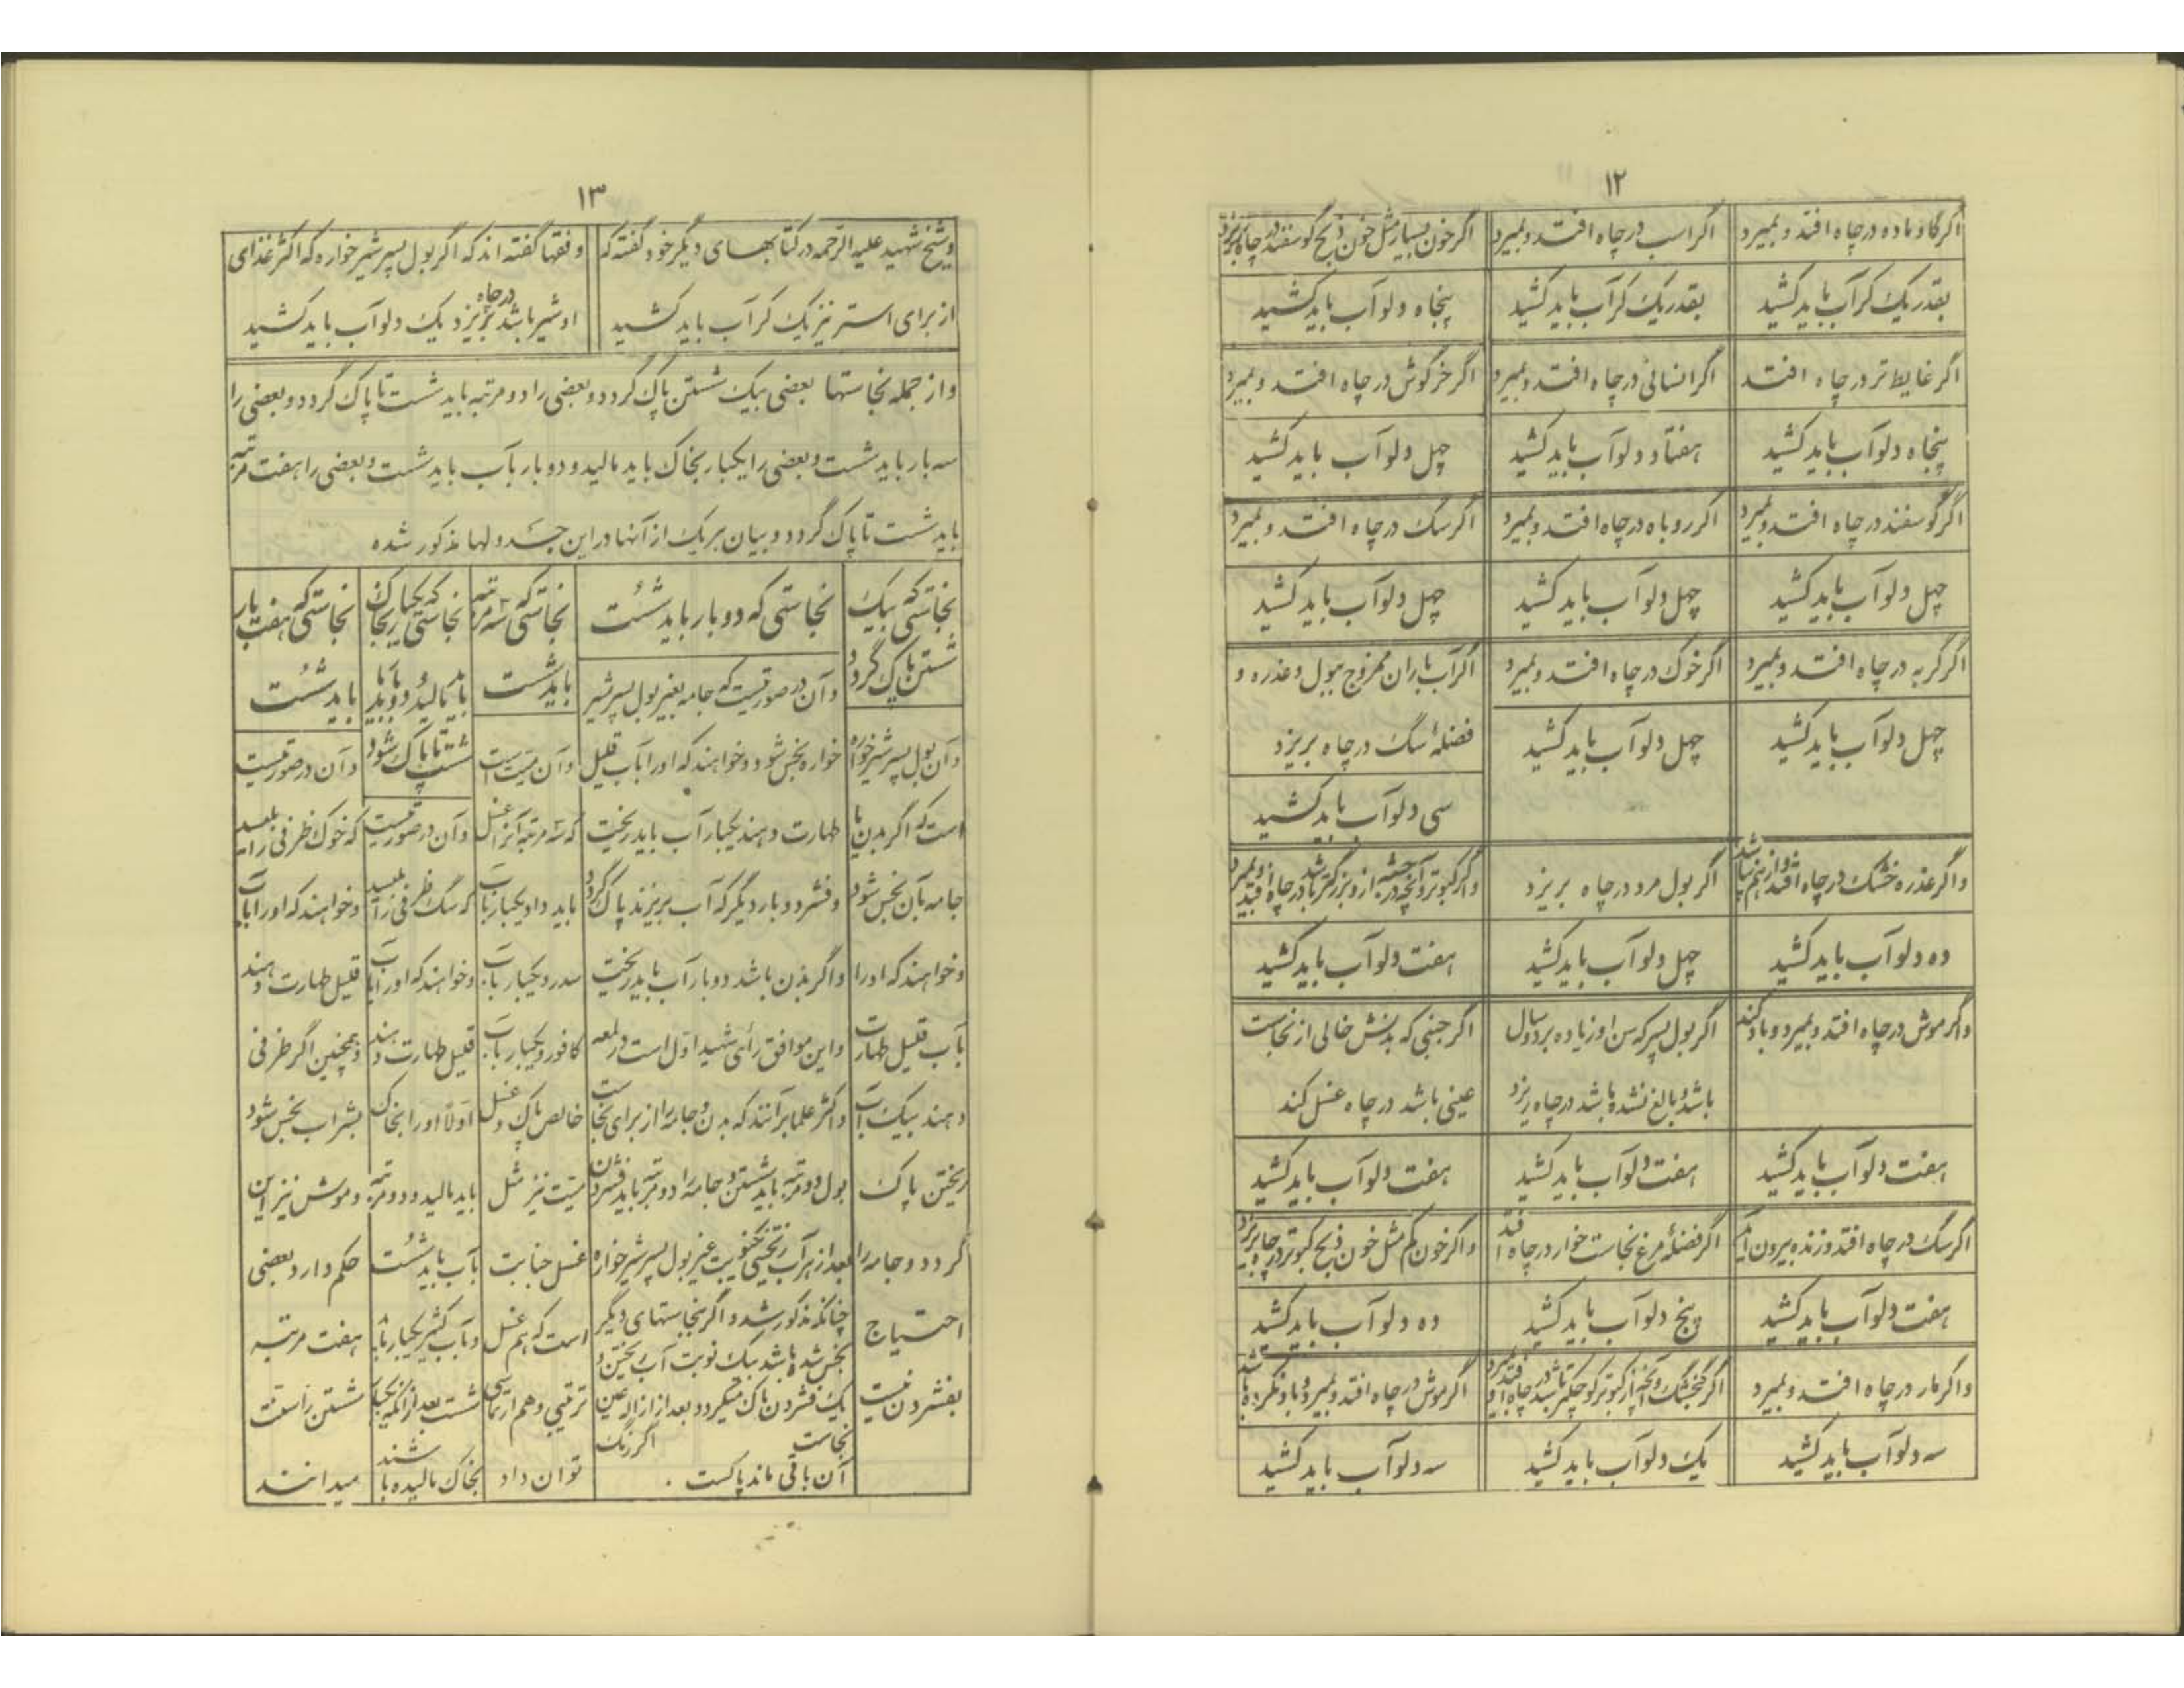 ۱۲
اگر گاو ماده در چاه افتد و بمیرد
اگر اسب در چاه افتد و بمیرد
اگر خون بسیار مثل خون ذبح گوسفند در چاه بریزد
بقدر یک کر آب باید کشید
بقدر یک کر آب باید کشید
پنجاه دلو آب باید کشید
اگر غایط تر در چاه افتد
اگر انسانی در چاه افتد و بمیرد
اگر خرگوش در چاه افتد و بمیرد
پنجاه دلو آب باید کشید
هفتاد دلو آب باید کشید
چهل دلو آب باید کشید
اگر گوسفند در چاه افتد و بمیرد
اگر روباه در چاه افتد و بمیرد
اگر سک در چاه افتد و بمیرد
چهل دلو آب باید کشید
چهل دلو آب باید کشید
چهل دلو آب باید کشید
اگر گربه در چاه افتد و بمیرد
اگر خوک در چاه افتد و بمیرد
اگر آب باران ممزوج ببول و عذره و
فضلهٔ سگ در چاه بریزد
چهل دلو آب باید کشید
چهل دلو آب باید کشید
سی دلو آب باید کشید
واگر عذره خشک در چاه افتد و از هم نپاشد
اگر بول مرد در چاه بریزد
واگر کبوتر و آنچه در جثه از و بزرگتر باشد در چاه افتد و بمیرد
ده دلو آب باید کشید
چهل دلو آب باید کشید
هفت دلو آب باید کشید
واگر موش در چاه افتد و بمیرد و باد کند
اگر بول پسر که سن او زیاده بر دو سال
باشد و بالغ نشده باشد در چاه ریزد
اگر جنبی که بدنش خالی از نجاست
عینی باشد در چاه غسل کند
هفت دلو آب باید کشید
هفت دلو آب باید کشید
هفت دلو آب باید کشید
اگر سک در چاه افتد و زنده بیرون آید
اگر فضلهٔ مرغ نجاست خوار در چاه افتد
واگر خون کم مثل خون ذبح کبوتر در چاه بریزد
هفت دلو آب باید کشید
پنج دلو آب باید کشید
ده دلو آب باید کشید
واگر مار در چاه افتد و بمیرد
اگر گنجشک و آنچه از کبوتر کوچکتر باشد در چاه افتد و بمیرد
اگر موش در چاه افتد و بمیرد و باد نکرده باشد
سه دلو آب باید کشید
یک دلو آب باید کشید
سه دلو آب باید کشید
۱۳
و شیخ شهید علیه الرحمه در کتابهای دیگر خود گفته که
از برای استر نیز یک کر آب باید کشید
و فقها گفته اند که اگر بول پسر شیر خواره که اکثر غذای
او شیر باشد در چاه بریزد یک دلو آب باید کشید
و از جمله نجاستها بعضی بیک شستن پاک گردد و بعضی را دو مرتبه باید شست تا پاک گردد و بعضی را
سه بار باید شست و بعضی را یکبار بخاک باید مالید و دو بار بآب باید شست و بعضی را هفت مرتبه
باید شست تا پاک گردد و بیان هر یک از آنها در این جدولها مذکور شده
نجاستی که بیک
شستن پاک گردد
وآن بول پسر شیر خواره
است که اگر بدن یا
جامه بآن نجس شود
و خواهند که او را
بآب قلیل طهارت
دهند بیک آب
ریختن پاک
گردد و جامه را
احتیاج
بفشردن نیست
نجاستی که دو بار باید شست
وآن در صورتیست که جامه بغیر بول پسر شیر
خواره نجس شود و خواهند که او را بآب قلیل
طهارت دهند یکبار آب باید ریخت
و فشرد و بار دیگر که آب بریزند پاک گردد
واگر بدن باشد دو بار آب باید ریخت
و این موافق رأی شهید اول است در لمعه
و اکثر علما بر آنند که بدن و جامه را از برای نجاست
بول دو مرتبه باید شستن و جامه را دو مرتبه باید فشردن
بعد از هر آب ریختنی یکنوبت غیر بول پسر شیر خواره
چنانکه مذکور شد و اگر بنجاستهای دیگر
نجس شده باشد بیک نوبت آب ریختن و
یک فشردن پاک میگردد و بعد از ازاله عین
نجاست اگر رنگ
آن باقی ماند پاکست .
نجاستی که سه مرتبه
باید شست
وآن میت است
که سه مرتبه آنرا غسل
باید داد یکبار بآب
سدر و یکبار بآب
کافور و یکبار بآب
خالص پاک و غسل
میت نیز مثل
غسل جنابت
است که هم غسل
ترتیبی و هم ارتماسی
توان داد
نجاستی که یکبار بخاک
باید مالید و دو بار بآب باید
شست تا پاک شود
وآن در صورتیست
که سگ ظرفی را بلیسد
و خواهند که او را بآب
قلیل طهارت دهند
اولا او را بخاک
باید مالید و دو مرتبه
بآب باید شست
و بآب کثیر یکبار باید
شست بعد از آنکه یکبار
بخاک مالیده باشند
نجاستی که هفت بار
باید شست
وآن در صورتیست
که خوک ظرفی را بلیسد
و خواهند که او را بآب
قلیل طهارت دهند
و همچنین اگر ظرفی
بشراب نجس شود
و موش نیز این
حکم دارد و بعضی
هفت مرتبه
شستن را سنت
میدانند